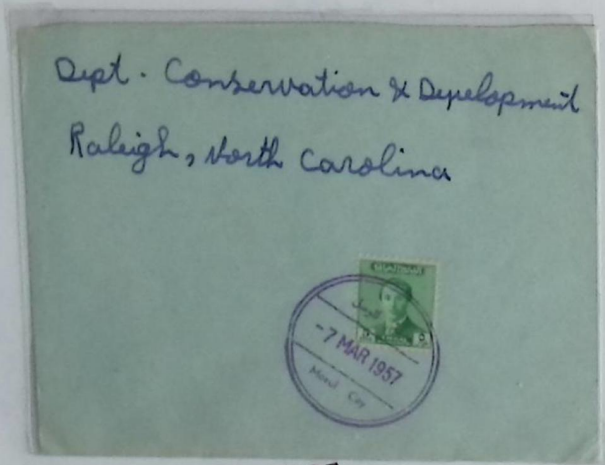 Dept. Conservation & Development
Raleigh, North Carolina
الموصل
-7 MAR 1957
Mosul City